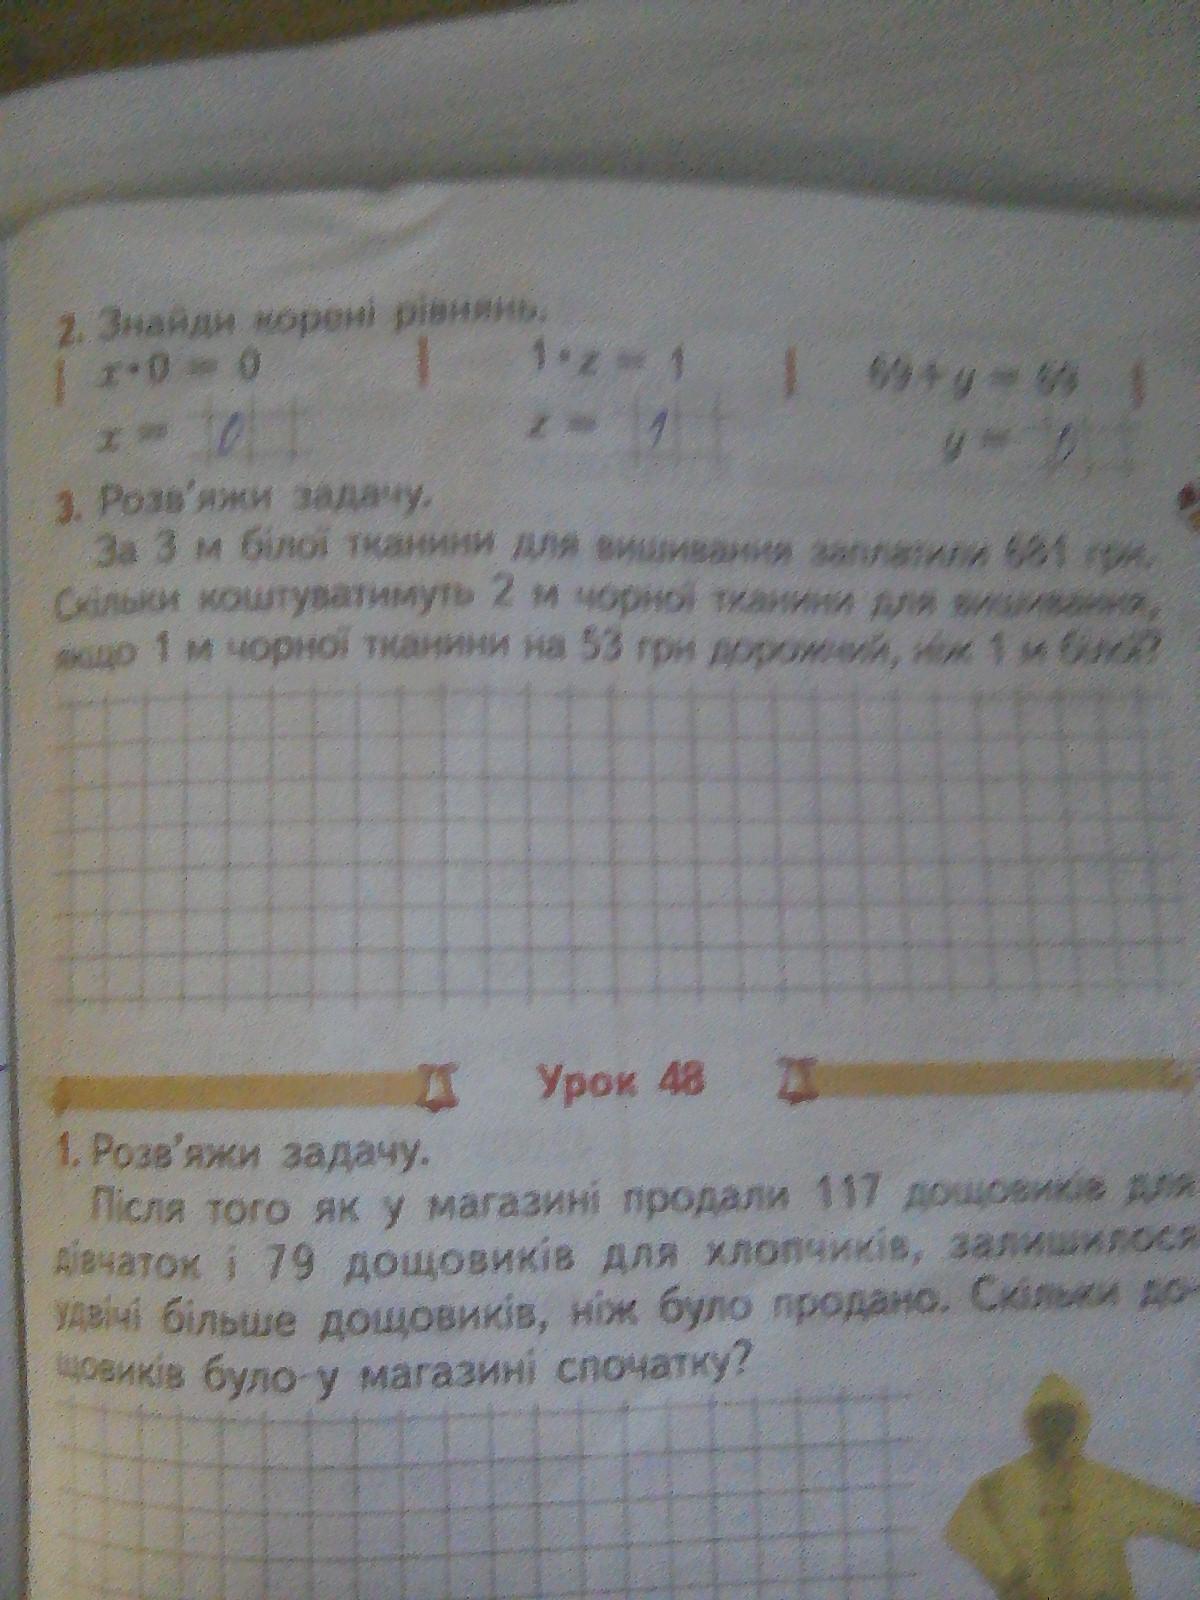 2. Знайди корені рівнянь.
x·0 = 0 1·z = 1 69+y = 69
x = 0 z = 1 y = 0
3. Розв'яжи задачу.
За 3 м білої тканини для вишивання заплатили 681 грн.
Скільки коштуватимуть 2 м чорної тканини для вишивання,
якщо 1 м чорної тканини на 53 грн дорожчий, ніж 1 м білої?
Урок 48
1. Розв'яжи задачу.
Після того як у магазині продали 117 дощовиків для
дівчаток і 79 дощовиків для хлопчиків, залишилося
удвічі більше дощовиків, ніж було продано. Скільки до-
щовиків було у магазині спочатку?